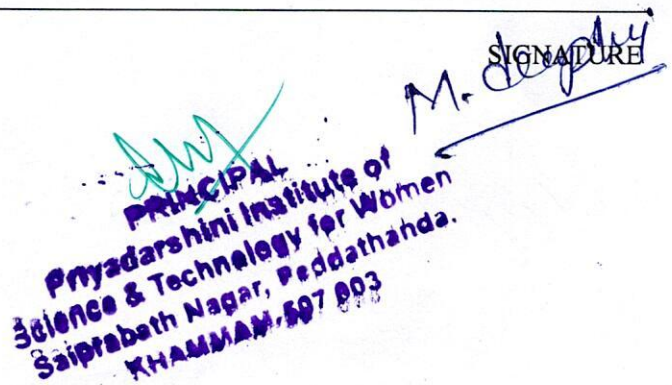 SIGNATURE
M.
PRINCIPAL
Priyadarshini Institute of
Science & Technology for Women
Saiprabath Nagar, Peddathanda.
KHAMMAM-507 003